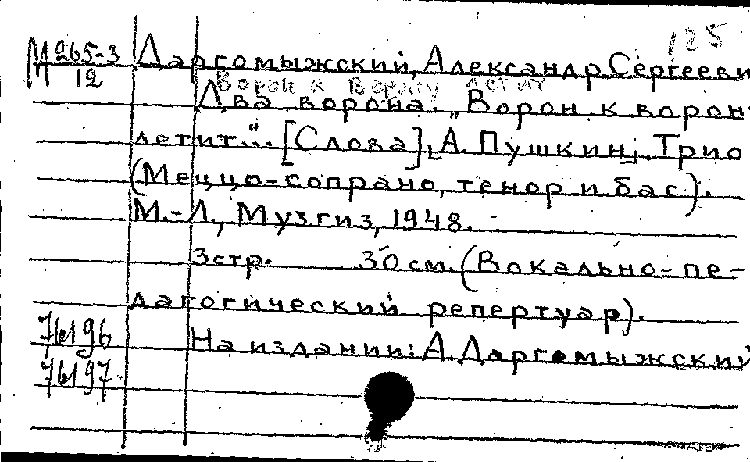 125
М 265-3 Даргомыжский, Александр Сергееви
12 Ворон к ворону летит
Два ворона. „Ворон к ворон
летит...". [Слова] А. Пушкин. Трио
(Меццо-сопрано, тенор и бас).
М.-Л., Музгиз, 1948.
3 стр. 30 см. (Вокально-пе-
дагогический репертуар).
76196 На издании: А. Даргомыжский
76197